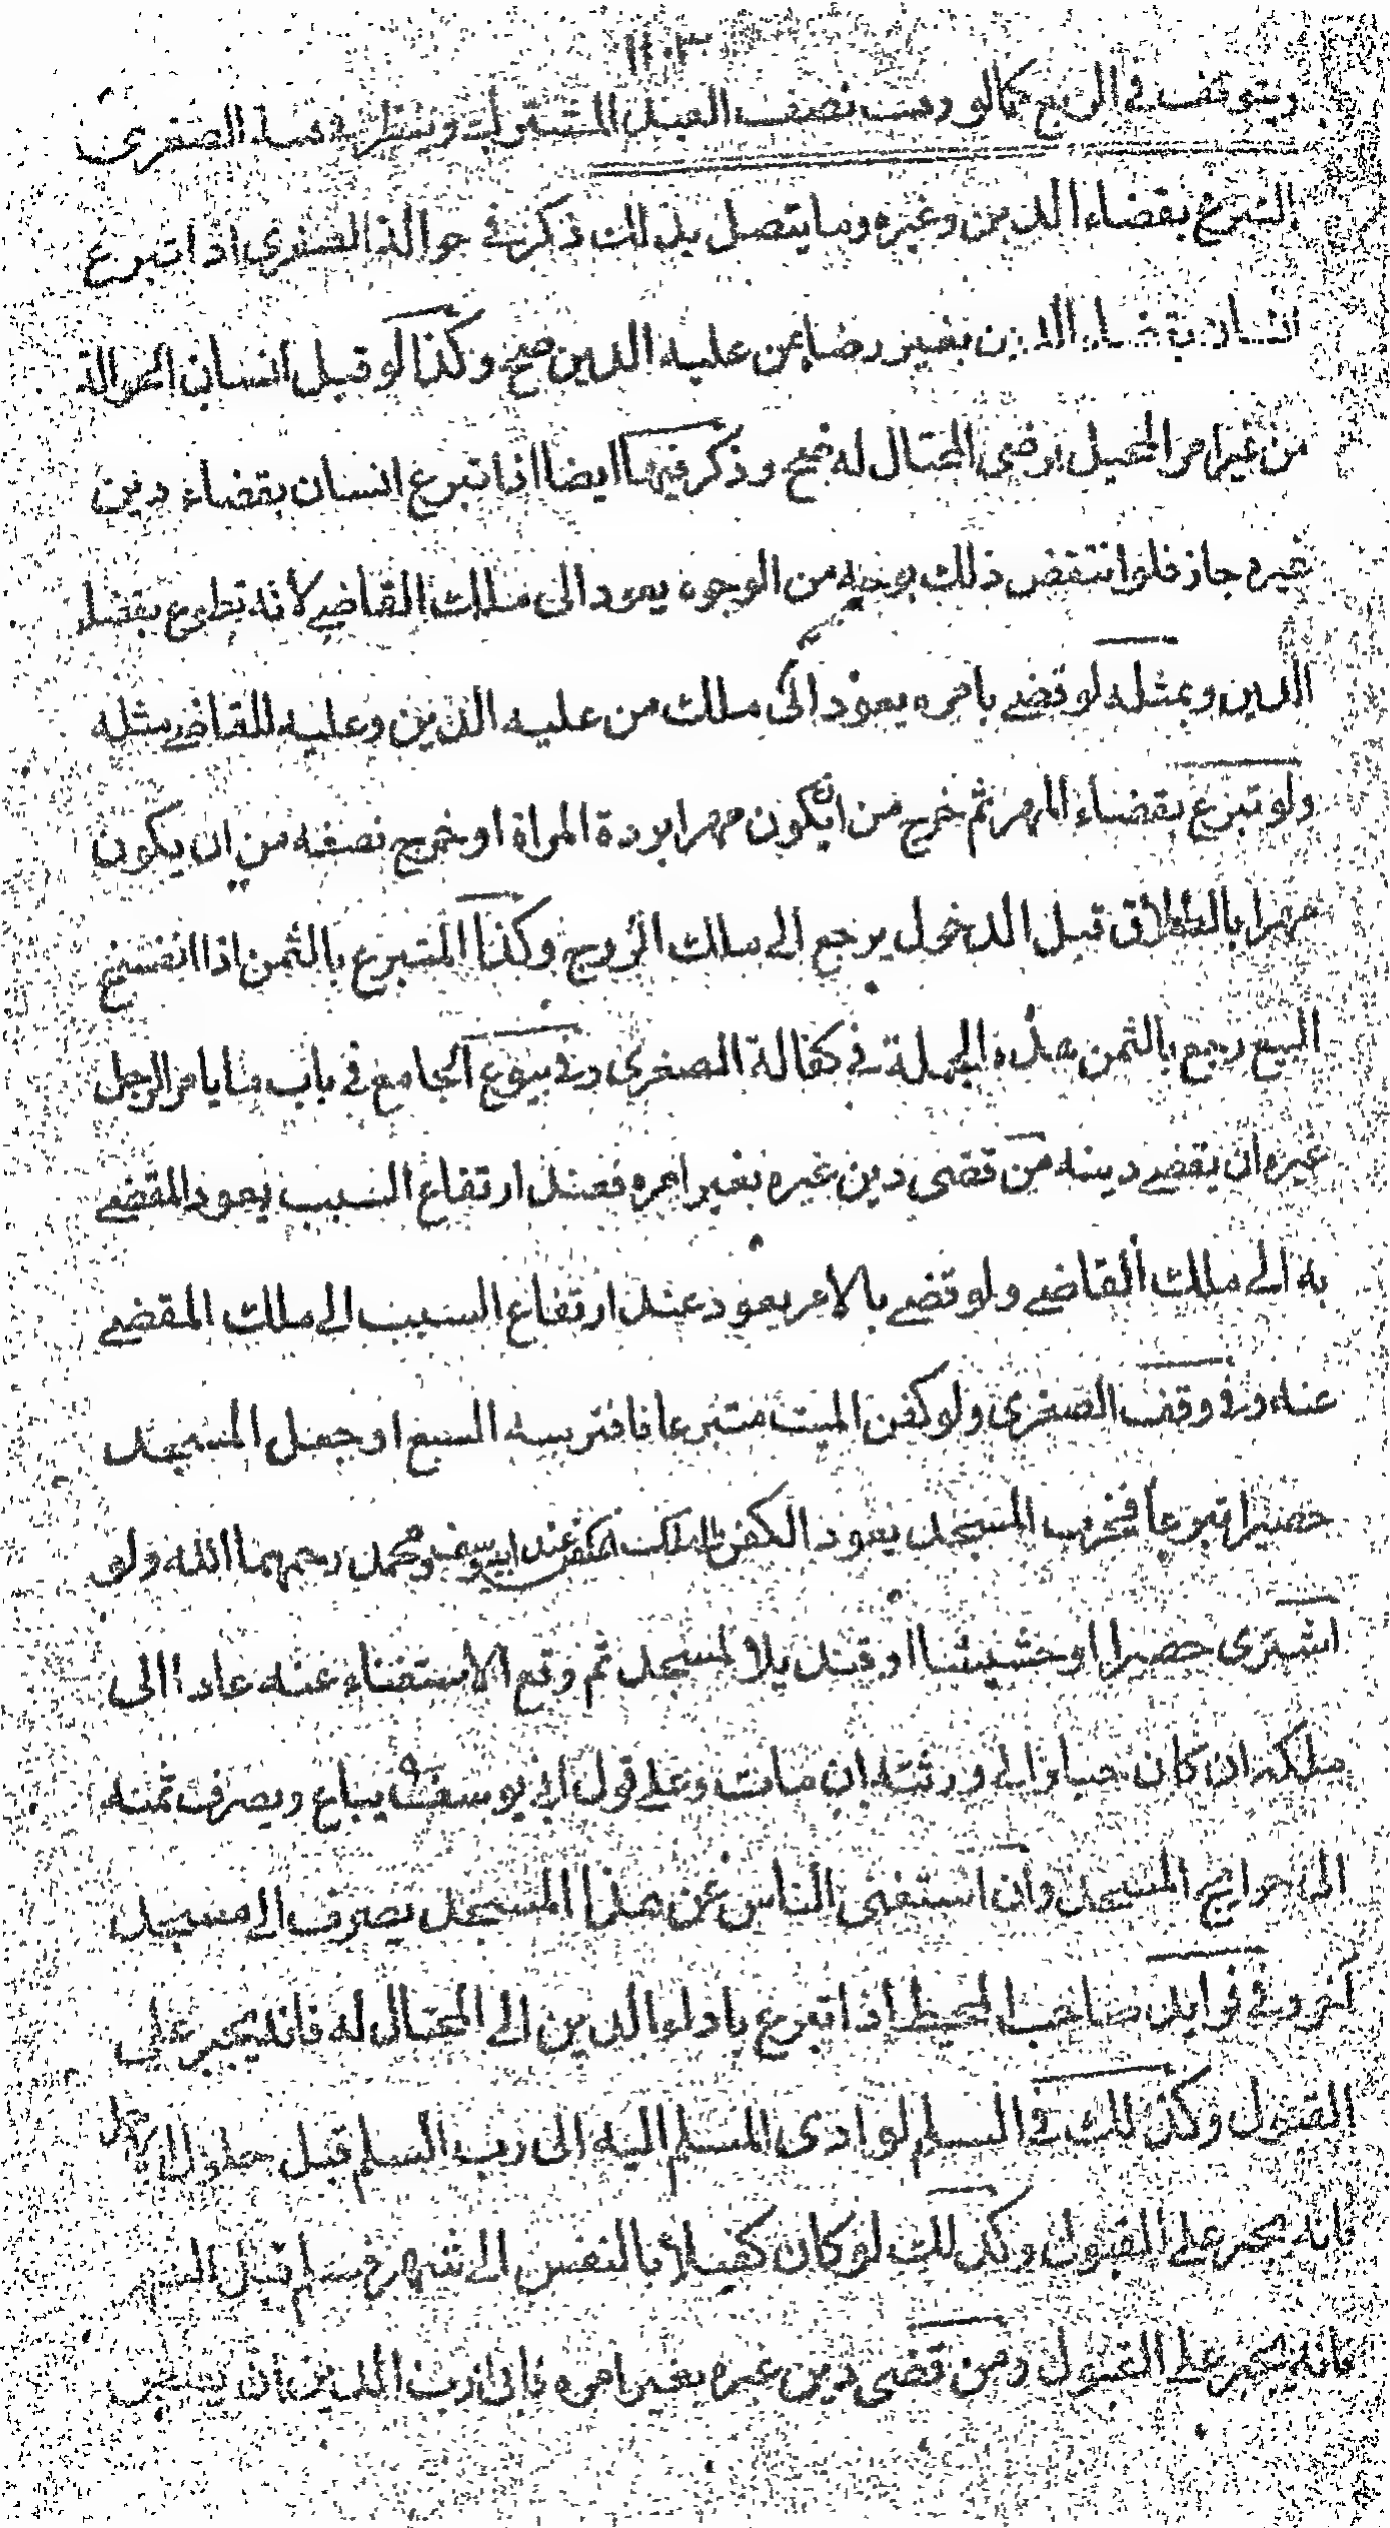 ويتوقف في الربع كما لو رهن نصف العبد المشترك وينظر في هبة الصغرى
التبرع بقضاء الدين وغيره وما يتصل بذلك ذكر في حوالة الصغرى اذا تبرع
انسان بقضاء الدين بغير رضا من عليه الدين صح وكذا لو قبل انسان الحوالة
من غير امر المحيل برضى المحتال له صح وذكر فيها ايضا اذا تبرع انسان بقضاء دين
غيره جاز فلو انتقض ذلك بوجه من الوجوه يعود الى ملك القاضي لانه تطوع بقضاء
الدين وبمثله لو قضى بامره يعود الى ملك من عليه الدين وعليه للقاضي مثله
ولو تبرع بقضاء المهر ثم خرج من ان يكون مهرا بردة المراة او خرج نصفه من ان يكون
مهرا بالطلاق قبل الدخول يرجع الى ملك الزوج وكذا المتبرع بالثمن اذا انفسخ
البيع رجع بالثمن هذه الجملة في كفالة الصغرى وفي بيوع الجامع في باب ما يامر الرجل
غيره ان يقضي دينه من قضى دين غيره بغير امره فعند ارتفاع السبب يعود المقضي
به الى ملك القاضي ولو قضى بالامر يعود عند ارتفاع السبب الى ملك المقضي
عنه وفي وقف الصغرى ولو كفن الميت متبرعا فافترسه السبع او جعل المسجد
حصيرا تبرعا فيخرب المسجد يعود الكفن الى ملك المكفن عند ابي يوسف ومحمد رحمهما الله ولو
اشترى حصيرا او حشيشا او قنديلا لمسجد ثم وقع الاستغناء عنه عاد الى
ملكه ان كان حيا والى ورثته ان مات وعلى قول ابي يوسف يباع ويصرف ثمنه
الى حوايج المسجد وان استغنى الناس عن هذا المسجد يصرف الى مسجد
آخر وفي فوايد صاحب المحيط اذا تبرع باداء الدين الى المحتال له فانه يجبر على
القبول وكذلك في السلم لو ادى المسلم اليه الى رب السلم قبل حلول الاجل
فانه يجبر على القبول وكذلك لو كان كفيلا بالنفس الى شهر فسلم قبل الشهر
فانه يجبر على القبول ومن قضى دين غيره بغير امره فابى رب الدين ان